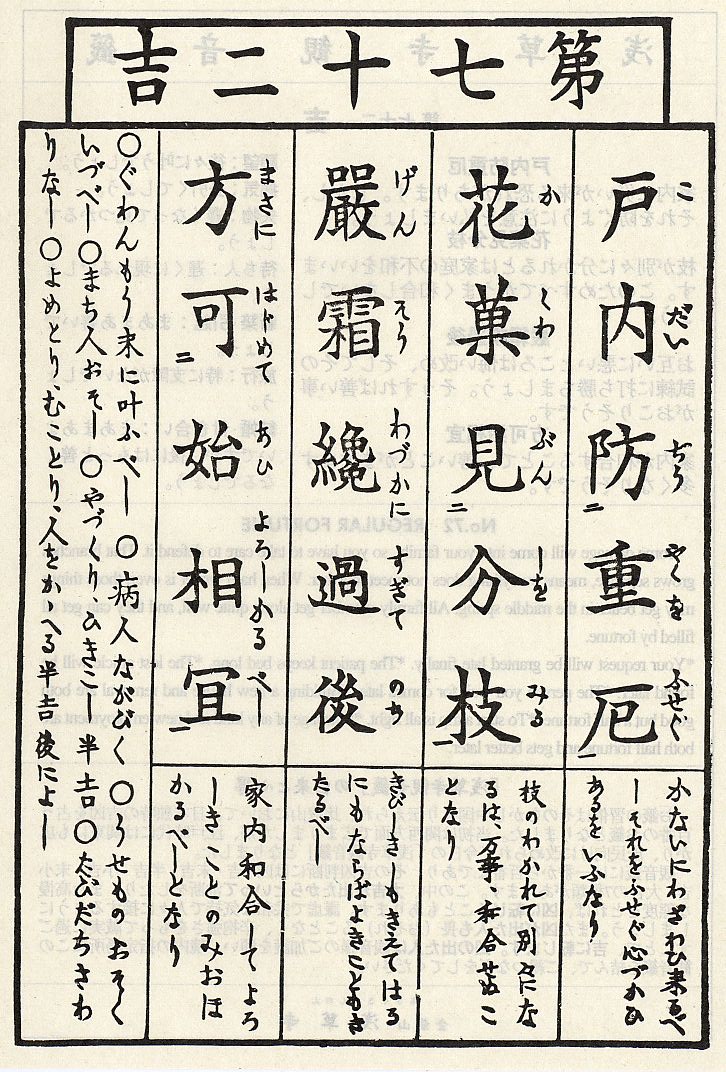 第七十二吉
戸内防二重厄一
こだいぢうやくをふせぐ
かないにわざわひ来るべ
しそれをふせぐ心づかひ
あるをいふなり
花菓見二分枝一
かくわぶんしをみる
枝のわかれて別々にな
るは、万事和合せぬこ
となり
嚴霜纔過後
げんそうわづかにすぎてのち
きびしきしももきえてはる
にもならばよきこともき
たるべし
方可二始相冝一
まさにはじめてあひよろしかるべし
家内和合してよろ
しきことのみおほ
かるべしとなり
○ぐわんもう末に叶ふべし○病人ながびく○うせものおそく
いづべし○まち人おそし○やづくり、ひきこし半吉○たびだちさわ
りなし○よめとりむことり、人をかゝへる半吉後によし